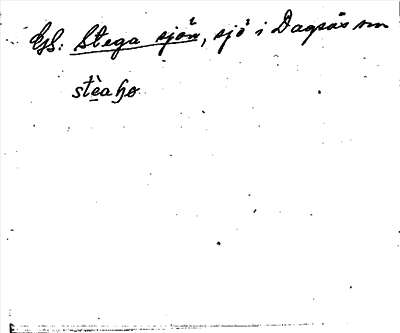 GS: Stega sjön, sjö i Dagsås sn
stèaɧø